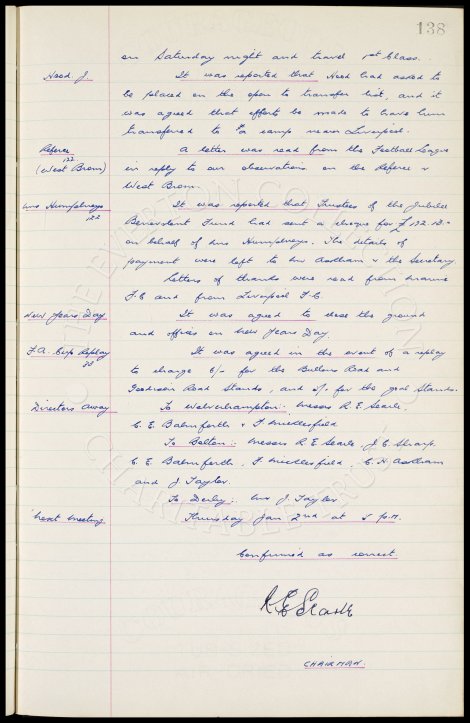 138
on Saturday night and travel 1st Class.
Hood J. It was reported that Hood had asked to
be placed on the open to transfer list, and it
was agreed that efforts be made to have him
transferred to a camp near Liverpool.
Referee A letter was read from the Football League
122
(West Brom) in reply to our observations on the Referee v
West Brom.
Mrs Humphreys It was reported that Trustees of the Jubilee
122
Benevolent Fund had sent a cheque for £132.12.-
on behalf of Mrs Humphreys. The details of
payment were left to Mr Askham & the Secretary.
Letters of thanks were read from Marine
F.C and from Liverpool F.C.
New Years Day It was agreed to close the ground
and offices on New Years Day.
F.A. Cup Replay It was agreed in the event of a replay
to charge 6/- for the Bullens Road and
Goodison Road Stands, and 5/- for the goal Stands.
Directors Away To Wolverhampton:- Messrs R.E. Searle,
C.E. Balmforth & F. Micklesfield
To Bolton:- Messrs R.E Searle, J.C. Sharp
C.E. Balmforth, F. Micklesfield, C.H. Askham
and J Taylor.
To Derby:- Mr J. Taylor
Next Meeting Thursday Jan 2nd at 5 p.m.
Confirmed as correct.
R E Searle
CHAIRMAN.
THE EVERTON COLLECTION
CHARITABLE TRUST